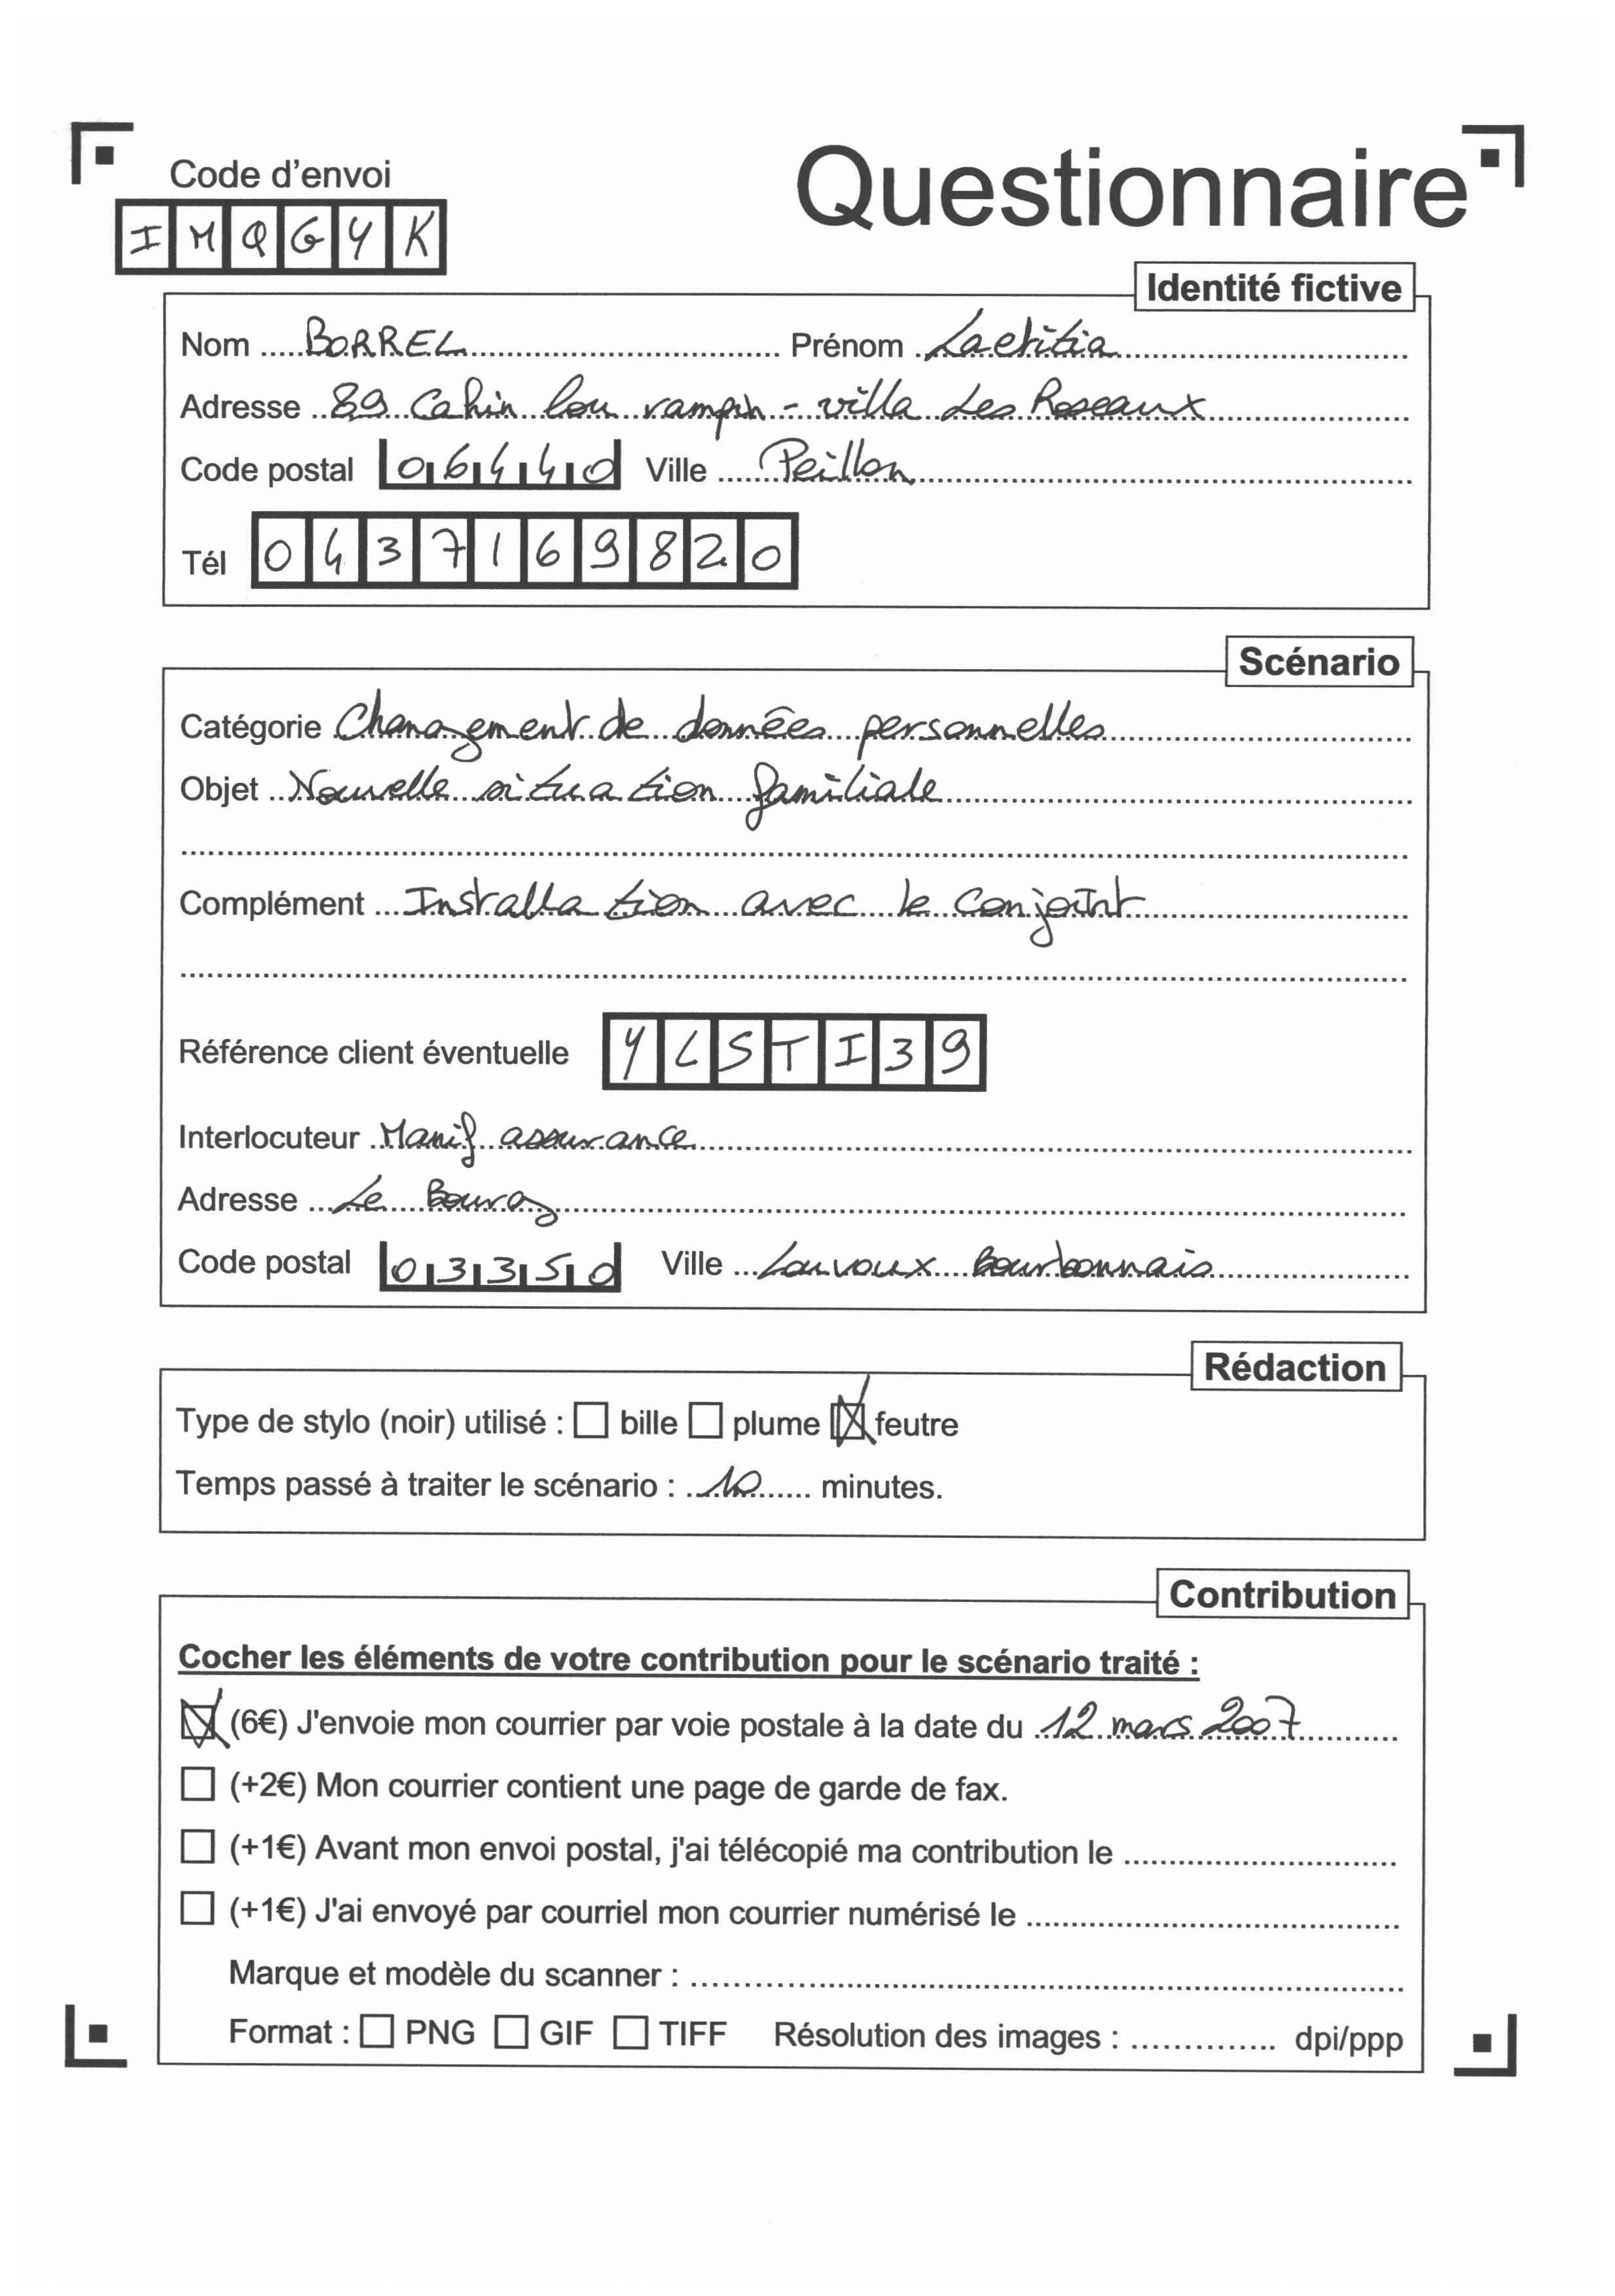 Code d'envoi
Questionnaire
IMQGYK
Identité fictive
Nom BORREL Prénom Laetitia
Adresse 89 Cahin lou ramph - villa Les Roseaux
Code postal 06440 Ville Peillon
Tél 0437169820
Scénario
Catégorie Changement de données personnelles
Objet Nouvelle situation familiale
Complément Installation avec le conjoint
Référence client éventuelle YLSTI39
Interlocuteur Manif assurance
Adresse Le Bourg
Code postal 03350 Ville Louroux Bourbonnais
Rédaction
Type de stylo (noir) utilisé : bille plume feutre
Temps passé à traiter le scénario : 10 minutes.
Contribution
Cocher les éléments de votre contribution pour le scénario traité :
(6€) J'envoie mon courrier par voie postale à la date du 12 mars 2007
(+2€) Mon courrier contient une page de garde de fax.
(+1€) Avant mon envoi postal, j'ai télécopié ma contribution le
(+1€) J'ai envoyé par courriel mon courrier numérisé le
Marque et modèle du scanner :
Format : PNG GIF TIFF Résolution des images : dpi/ppp